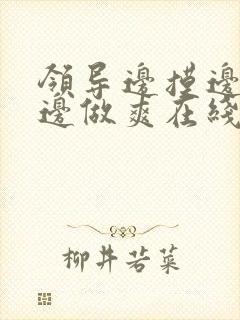 領导邊摸邊
邊做爽在綫
柳井若菜